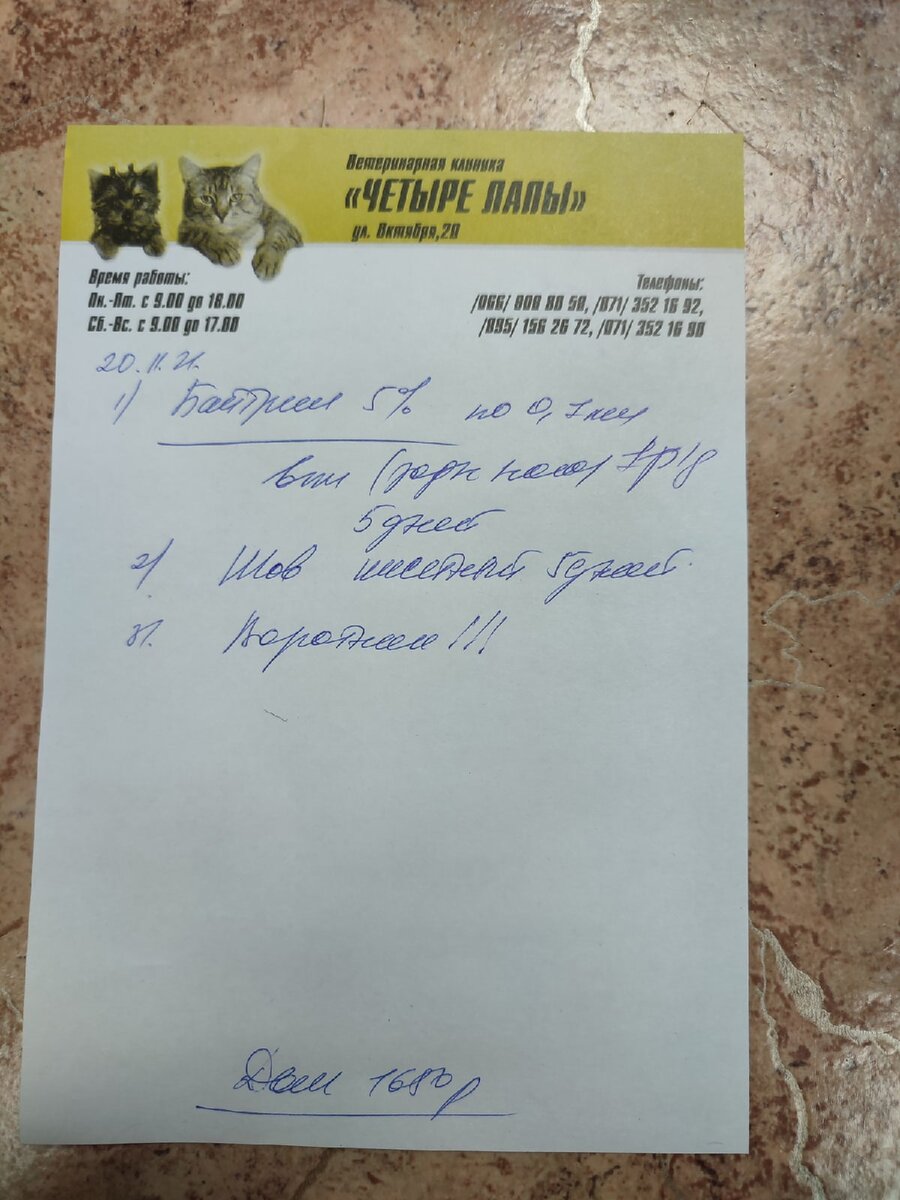 Ветеринарная клиника
«ЧЕТЫРЕ ЛАПЫ»
ул. Октября,20
Время работы:
Пн.-Пт. с 9.00 до 18.00
Сб.-Вс. с 9.00 до 17.00
Телефоны:
/066/ 000 80 50, /071/ 352 16 92,
/095/ 156 26 72, /071/ 352 16 90
20.11.21.
1) Байтрил 5% по 0,7 мл
в/м 1р/д
5 дней
2) Шов 5 дней.
3). Воротник!!!
1680 р